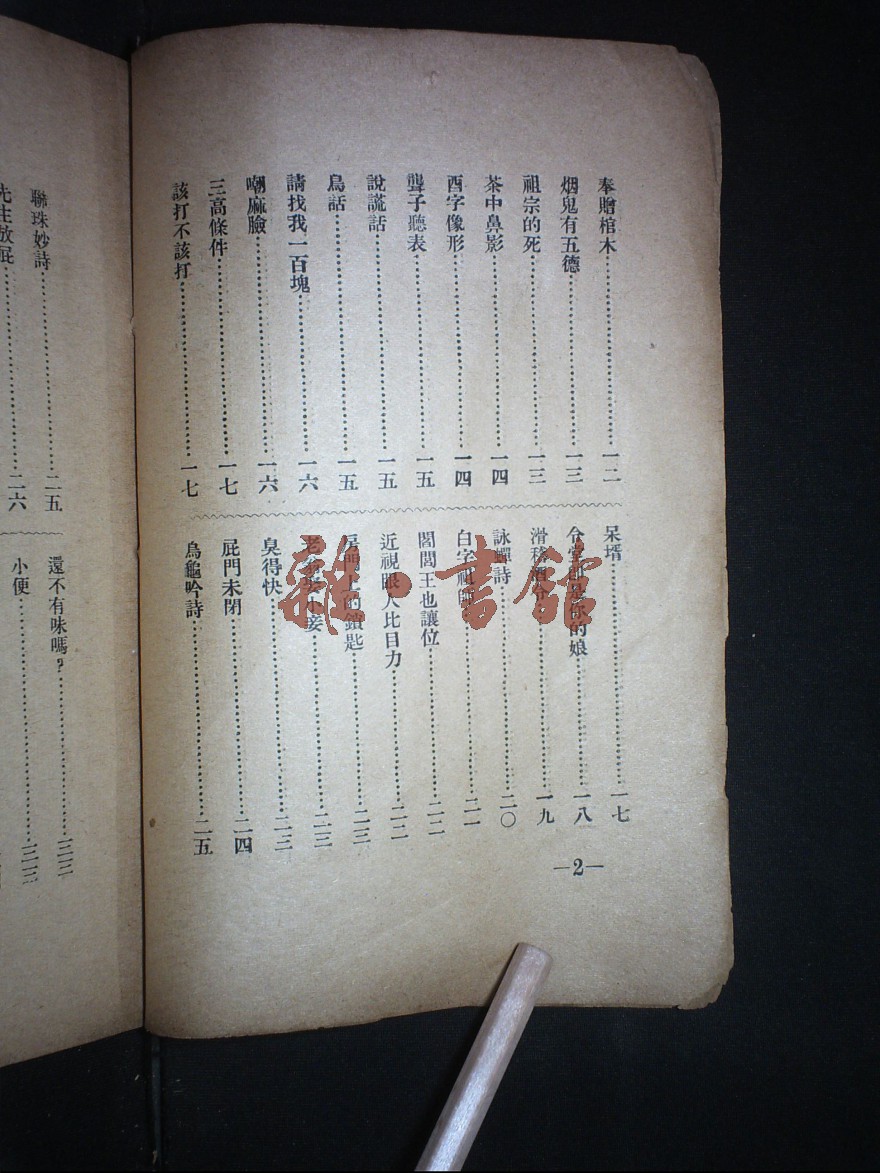 奉贈棺木…………一二
烟鬼有五德…………一三
祖宗的死…………一三
茶中鼻影…………一四
酉字像形…………一四
聾子聽表…………一五
說謊話…………一五
鳥話…………一五
請找我一百塊…………一六
嘲麻臉…………一六
三高條件…………一七
該打不該打…………一七
呆壻…………一七
令堂卽是你的娘…………一八
滑稽酒令…………一九
詠蟬詩…………二〇
白字祖師…………二一
閻閭王也讓位…………二二
近視眼人比目力…………二二
房門上的鎖匙…………二三
老翁娶小妾…………二三
臭得快…………二三
屁門未閉…………二四
烏龜吟詩…………二五
—2—
聯珠妙詩…………二五
先生放屁…………二六
還不有味嗎？…………三三
小便…………三三
雜·書館